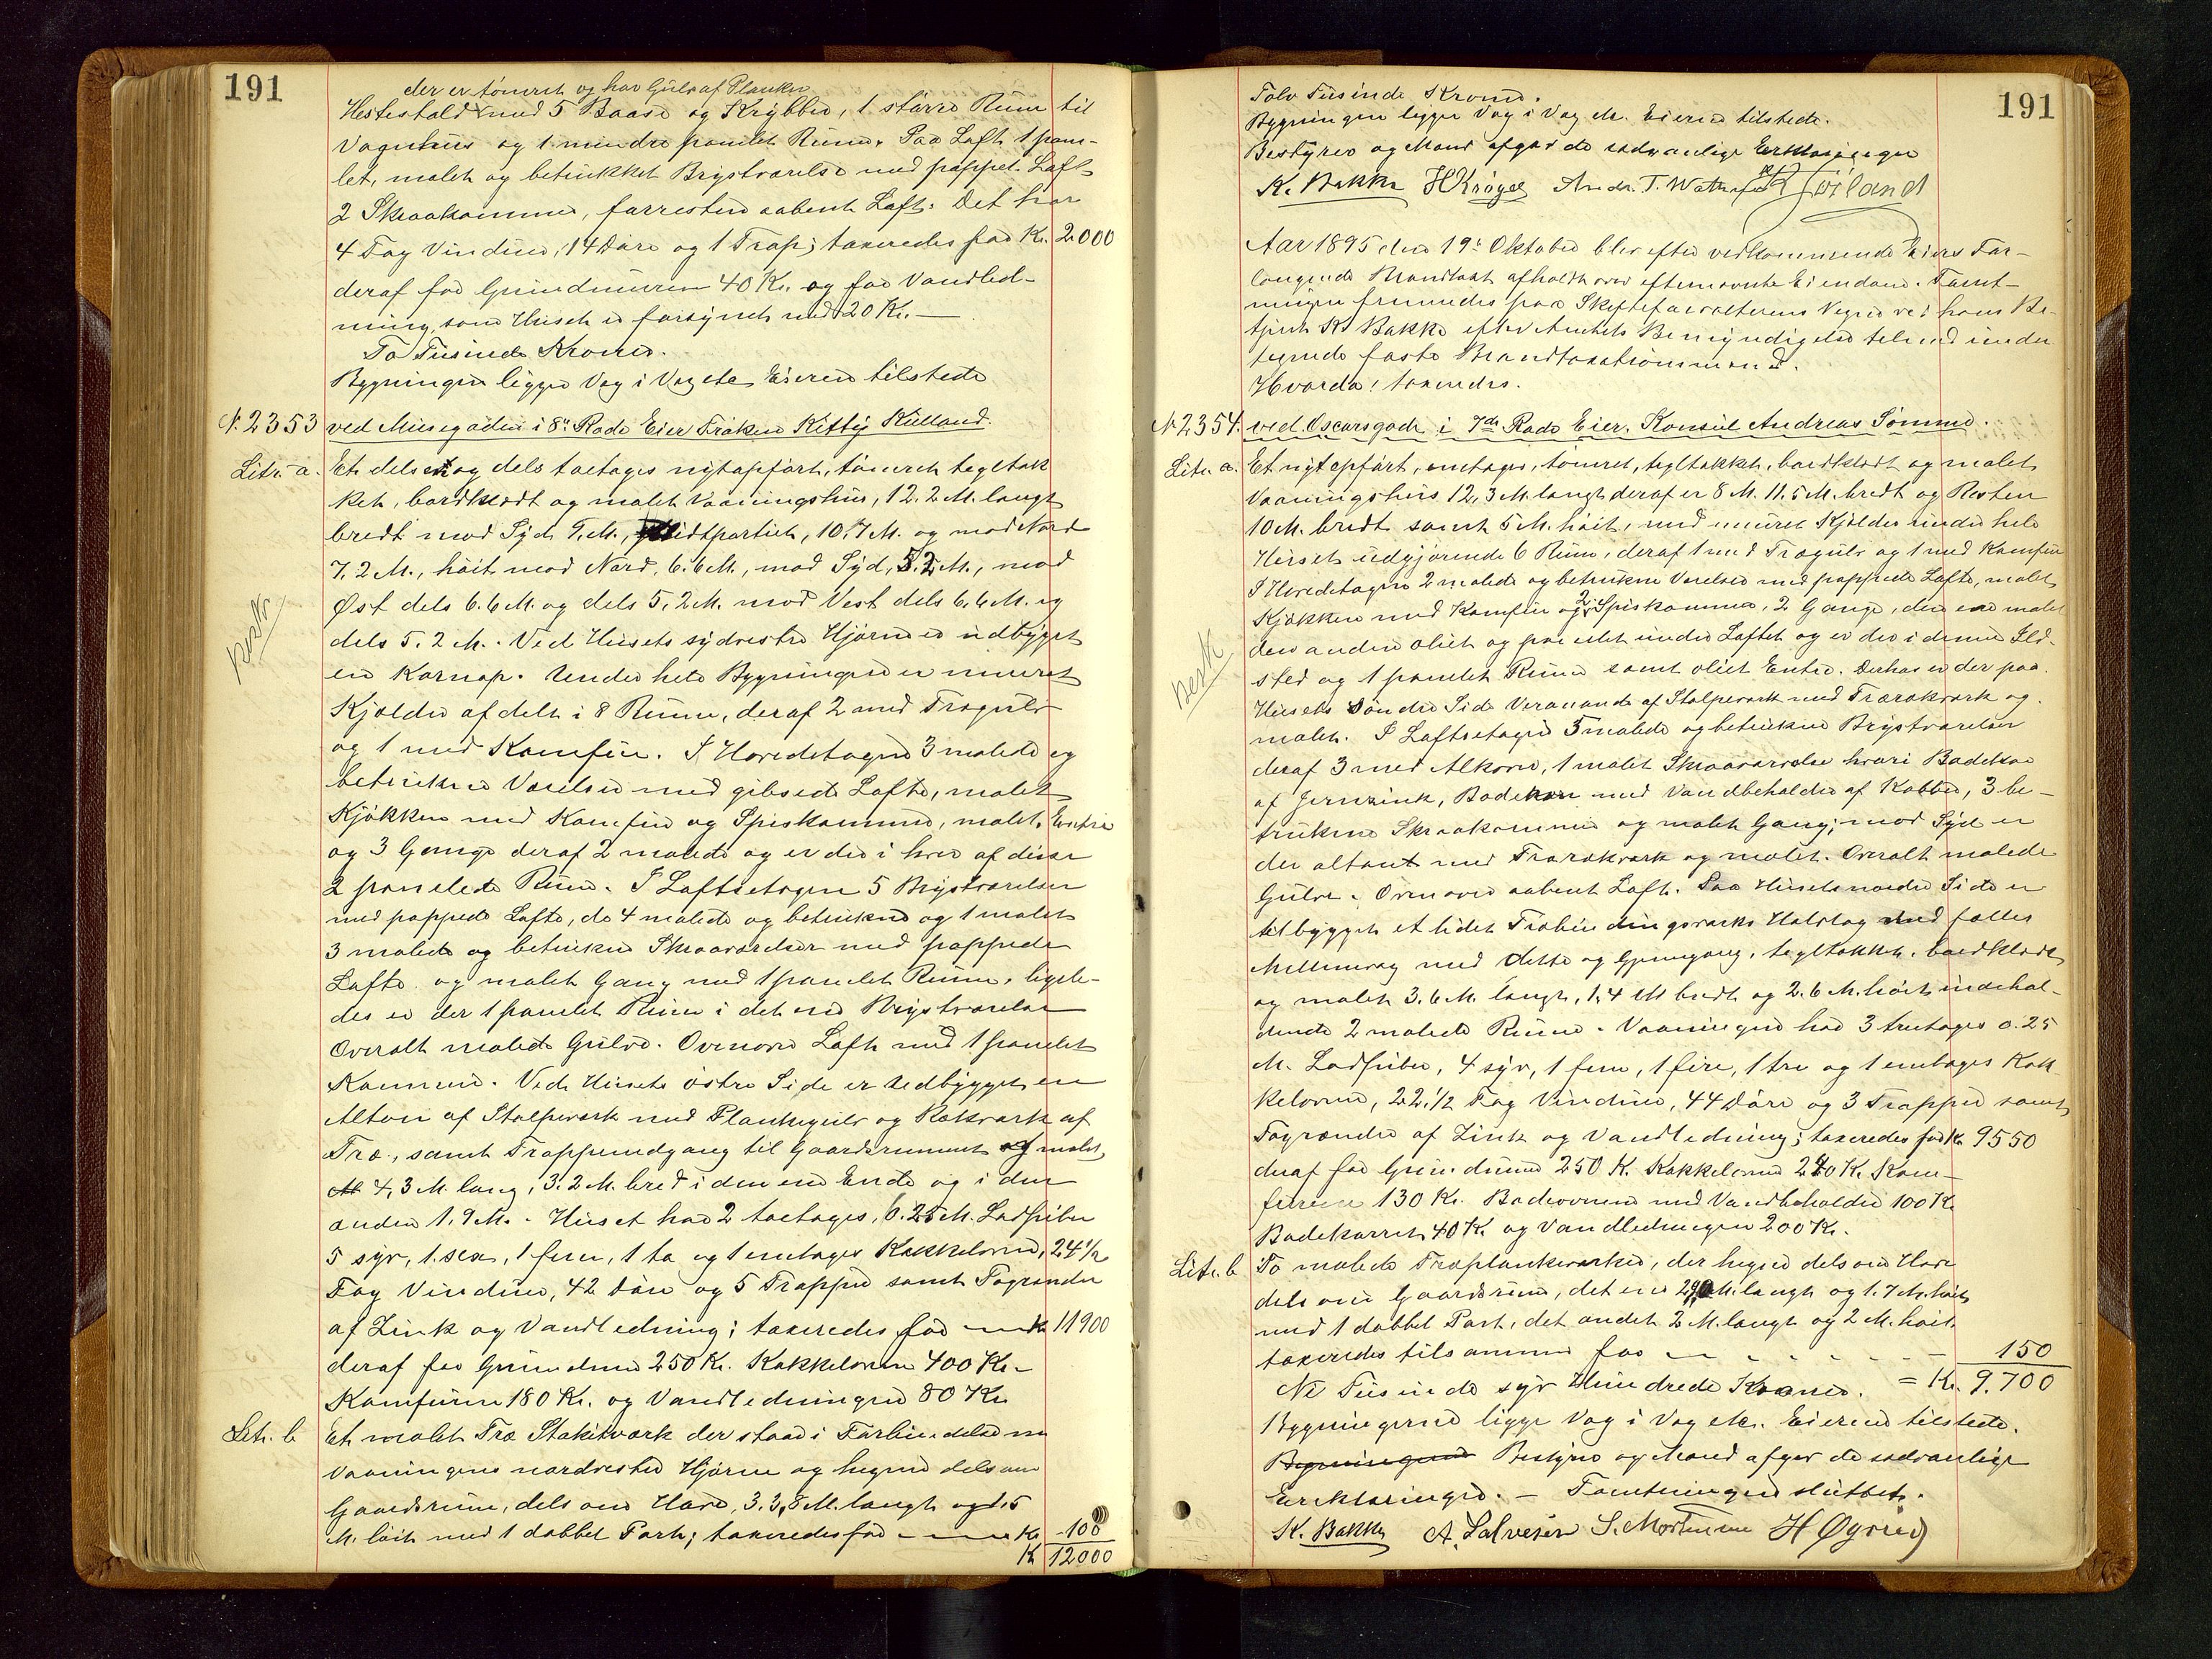 191
der er tømret og har Gulv af Planker
Hestestald med 5 Baase og Krybber, 1 større Rum til
Vognhus og 1 mindre panelet Rum. Paa Loft 1 pane-
let, malet og betrukket Brystværelse med pappet Loft
2 Skraakammere, forresten aabent Loft. Det har
4 Fag Vinduer, 14 Døre og 1 Trap; taxeredes for Kr. 2000
deraf for Grundmuren 40 Kr. og for Vandled-
ning, som Huset er forsynet med 20 Kr. —
To Tusinde Kroner.
Bygningen ligger Vag i Vag etc Eieren tilstede
N. 2353 ved Musegaden i 8de Rode Eier Frøken Kitty Kielland.
Litr. a. Et dels en og dels toetages nytopført, tømret tegltæk
ket, bordklædt og malet Vaaningshus, 12.2 M. langt
bredt mod Syd 9. M., Midtpartiet, 10.7 M. og mod Nord
7.2 M., høit mod Nord, 6.6 M., mod Syd, 5.2 M., mod
Øst dels 6.6 M. og dels 5.2 M. mod Vest dels 6.6 M. og
dels 5.2 M. Ved Husets sydvestre Hjørne er udbygget
en Karnap. Under hele Bygningen er muret
Kjælder afdelt i 8 Rum, deraf 2 med Trægulv
og 1 med Komfur. I Hovedetagen 3 malede og
betrukne Værelser med gibsede Lofte, malet
Kjøkken med Komfur og Spiskammer, malet Entre
og 3 Gange deraf 2 malede og er der i hver af disse
2 panelede Rum. I Loftsetagen 5 Brystværelser
med pappede Lofte, de 4 malede og betrukne og 1 malet
3 malede og betrukne Skraaværelser med pappede
Lofte og malet Gang med 1 panelet Rum, ligele-
des er der 1 panelet Rum i det ene Brystværelse
Overalt malede Gulve. Ovenover Loft med 1 panelet
Kammer. Ved Husets østre Side er udbygget en
Altan af Stolpeværk med Plankegulv og Rækværk af
Træ, samt Trappenedgang til Gaardsrummet og malet
4,3 M. lang, 3.2 M. bred i den ene Ende og i den
anden 1,9 M. Huset har 2 toetages, 0.25 M. Ladpiber
5 syv, 1 sex, 1 fem, 1 to og 1 enetages Kakkelovne, 24 1/2
Fag Vinduer, 42 Døre og 5 Trapper samt Tagrender
af Zink og Vandledning; taxeredes for — Kr 11900
deraf for Grundmur 250 Kr. Kakkelovne 400 Kr.
Komfurene 180 Kr. og Vandledningen 80 Kr.
Litr. b Et malet Træ Stakitværk der staar i Forbindelse m
Vaaningens nordvestre Hjørne og hegner dels om
Gaardsrum, dels om Have, 3.2,8 M. langt og 1.5
M. høit med 1 dobbel Port; taxeredes for — Kr 100
Kr 12000
perk
191
Tolv Tusinde Kroner.
Bygningen ligger Vag i Vag etc. Eieren tilstede.
Bestyrer og Mænd afgav de sædvanlige Erklæringer
K. Bakke H Krøger Andr. T. Watne R Høiland
Aar 1895 den 19de Oktober blev efter vedkommende Eiers For-
langende Brandtaxt afholdt over efternævnte Eiendom. Taxt-
ningen fremmedes paa Skiftefarvalterens Vegne ved hans Be-
tjent K Bakke efter Amtets Bemyndigelse tilmed under
tegnede faste Brandtaxationsmænd.
Hvorda: taxeredes.
N 2354. ved Oscarsgade i 7de Rode Eier. Konsul Andreas Sømme.
Litr. a. Et nytopført, enetages, tømret, tegltækket, bordklædt og malet
Vaaningshus 12,3 M. langt deraf er 8 M. 11.5 M. bredt og Resten
10 M. bredt samt 5 M. høit, med muret Kjælder under hele
Huset udgjørende 6 Rum, deraf 1 med Trægulv og 1 med Komfur
I Hovedetagen 2 malede og betrukne Værelser med pappede Lofte, malet
Kjøkken med Komfur og 2 Spiskammer, 2 Gange, den ene malet
den anden oliet og panelet under Loftet og er der i denne Ild-
sted og 1 panelet Rum samt oliet Entre. Derhos er der paa
Husets Søndre Side Veranda af Stolpeværk med Trærækværk og
malet. I Loftsetagen 5 malede og betrukne Brystværelser
deraf 3 med Alkove, 1 malet Skraaværelse hvori Badekar
af Jernzink, Badeovn med Vandbeholder af Kobber, 3 be-
trukne Skraakammer og malet Gang; mod Syd er
der altant med Trærækværk og malet. Overalt malede
Gulve. Ovenover aabent Loft. Paa Husets nordre Side er
tilbygget et lidet Træbindingsværks Halvtag med fælles
Mellemvæg med dette og Gjennemgang, tegltækket, bordklædt
og malet 3.6 M. langt, 1,4 M bredt og 2.6 M. høit, indehol-
dende 2 malede Rum. Vaaningen har 3 treetages 0.25
M. Ladpiber, 4 syv, 1 fem, 1 fire, 1 tre og 1 enetages Kak
kelovne, 22 1/2 Fag Vinduer, 44 Døre og 3 Trapper samt
Tagrender af Zink og Vandledning; taxeredes for Kr 9550
deraf for Grundmur 250 K. Kakkelovne 240 Kr. Kom-
furene 130 Kr. Badeovnen med Vandbeholder 100 Kr
Badekarret 40 Kr. og Vandledningen 200 Kr.
Litr. b To malede Træplankeværker, der hegner dels om Have
dels om Gaardsrum, det ene 29 M. langt og 1.7 M. høit
med 1 dobbel Port, det andet 2 M. langt og 2 M. høit.
taxeredes tilsammen for — 150
Ni Tusinde syv Hundrede Kroner. = Kr. 9.700
Bygningerne ligger Vag i Vag etc. Eieren tilstede.
Bygningerne Bestyrer og Mænd afgav de sædvanlige
Erklæringer. — Forretningen sluttet.
K. Bakke A. Salvesen S. Mortensen H Øgreid
perk